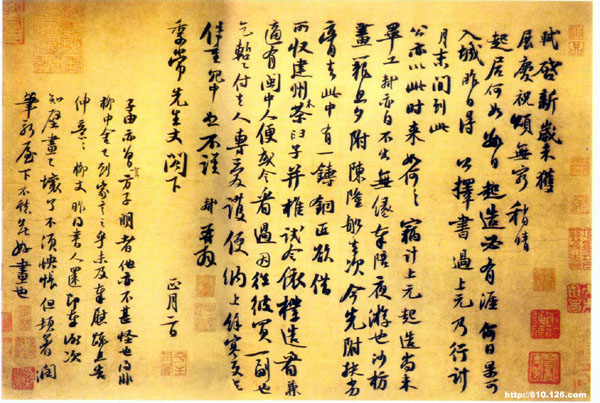 軾啓新歲未獲
展慶祝頌無窮稍晴
起居何如數日起造必有涯何日果可
入城昨日得公擇書過上元乃行計
月末間到此
公亦以此時來如何々竊計上元起造尚未
畢工軾亦自不出無緣奉陪夜遊也沙枋
畫籠旦夕附陳隆船去次今先附扶劣
膏去此中有一鑄銅匠欲借
所收建州木茶臼子并椎試令依樣造看兼
適有閩中人便或令看過因往彼買一副也
乞暫付去人專愛護便納上餘寒更乞
保重冗中恕不謹軾再拜
季常先生丈閣下
正月二日
子由亦曾言方子明者他亦不甚怪也得非
柳中舍已到家言之乎未及奉慰疏且告
伸意々柳丈昨得書人還即奉謝次
知壁畫已壞了不須怏悵但頓著潤
筆新屋下不愁無好畫也
http://610.126.com/